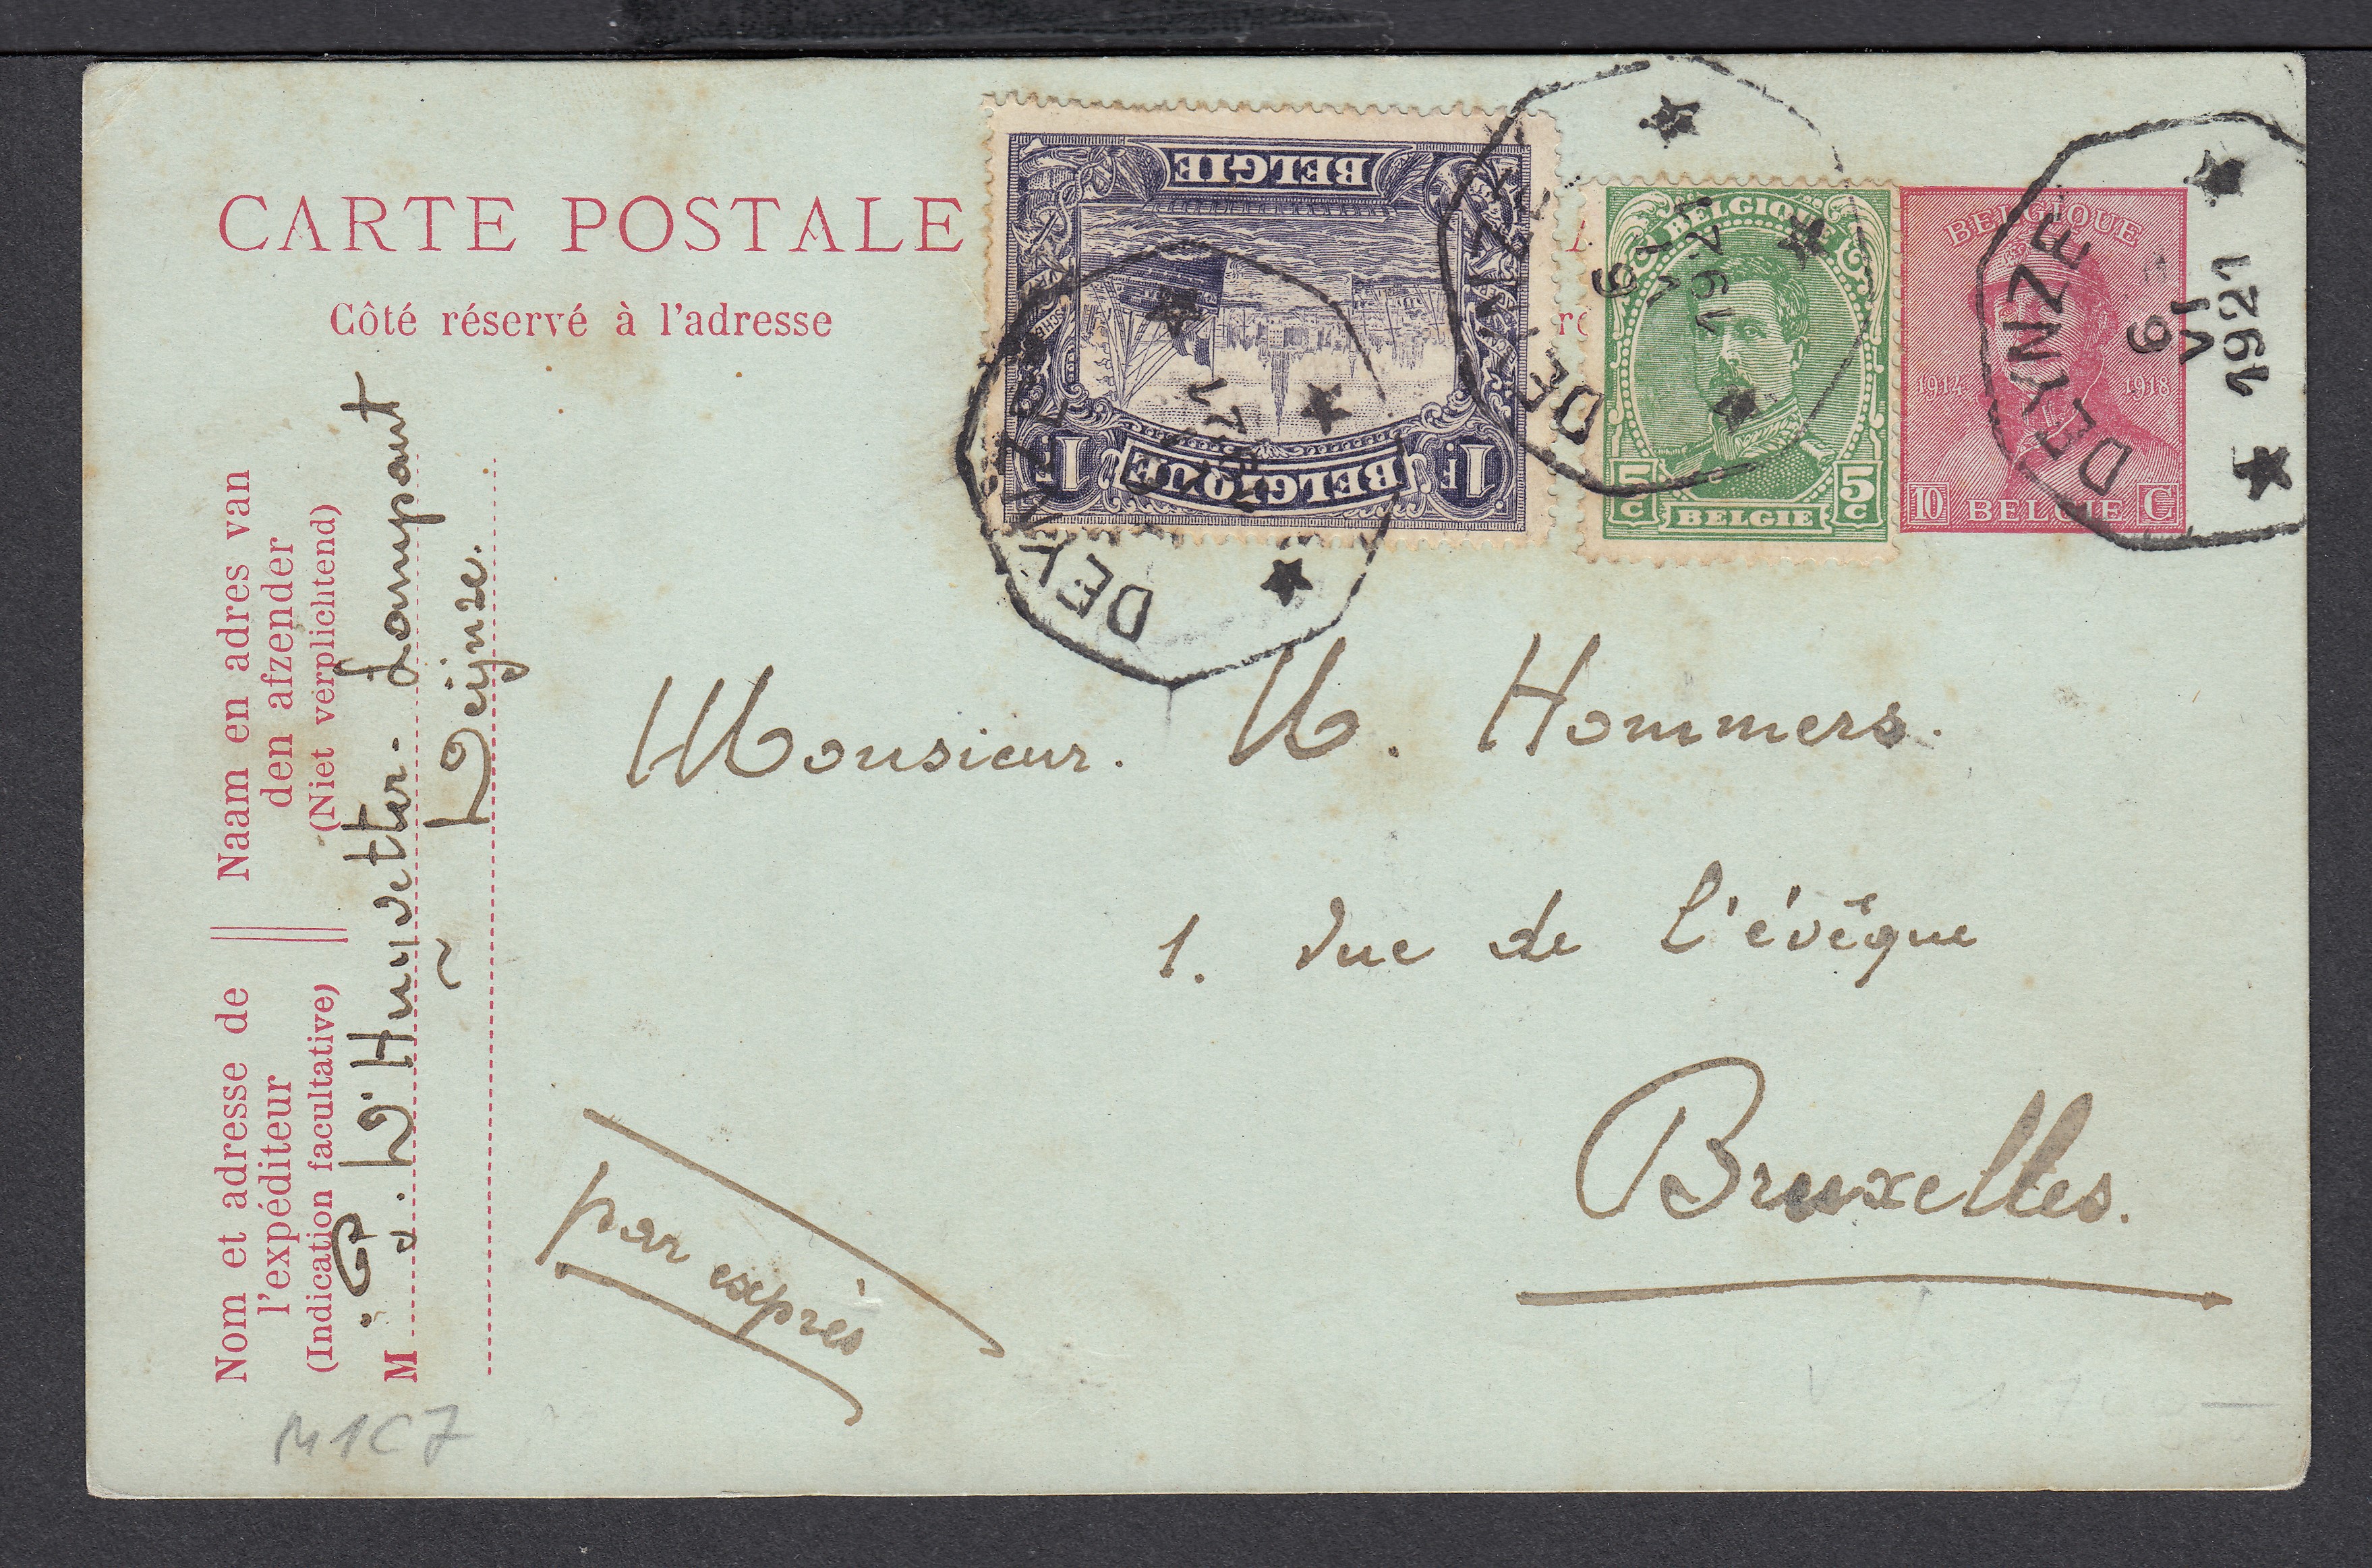 CARTE POSTALE
Côté réservé à l'adresse
BELGIE
BELGIQUE
1F
1F
BELGIQUE
5c
5c
BELGIE
BELGIQUE
1914 1918
10 BELGIE C
DEYNZE
DEYNZE
6
VI
1921
DEYNZE
6
VI
1921
Naam en adres van
den afzender
(Niet verplichtend)
Nom et adresse de
l'expéditeur
(Indication facultative)
M
Deijnze.
Monsieur. Hommers.
1. rue de l'évêque
Bruxelles.
par exprès
M1C7